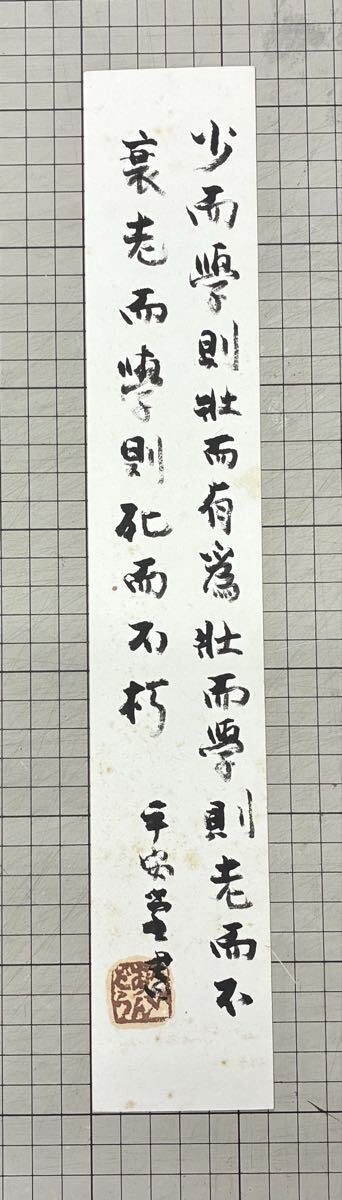 少而學則壯而有爲壯而學則老而不
衰老而學則死而不朽
平安堂書